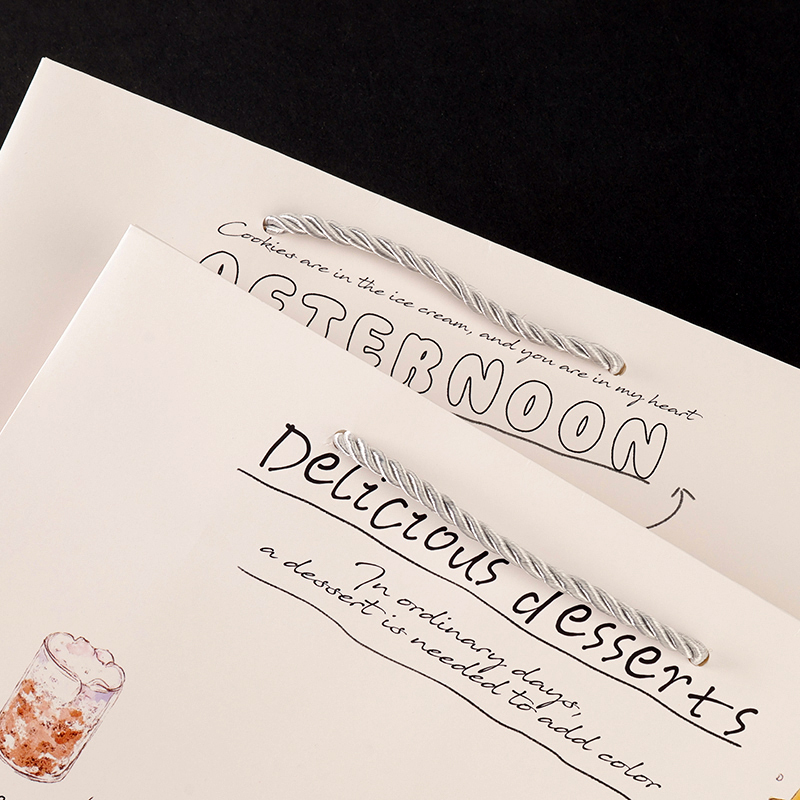 Cookies are in the ice cream, and you are in my heart
AFTERNOON
Delicious desserts
In ordinary days,
a dessert is needed to add color